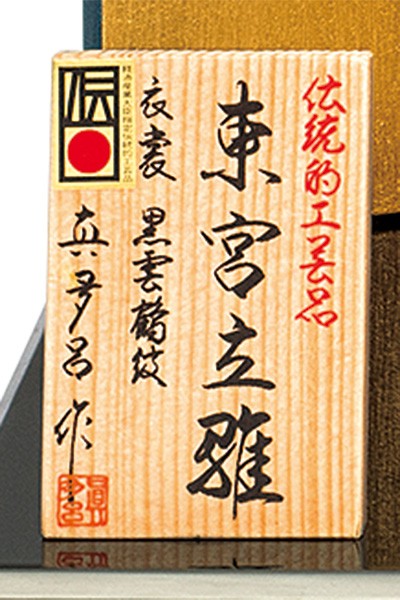 伝統的工芸品
東宮立雛
衣裳 黒雲鶴紋
真多呂作
伝
経済産業大臣指定伝統的工芸品